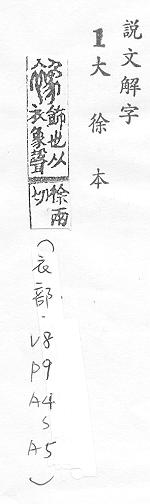 說文解字
1大徐本
襐飾也从
衣象聲
徐兩
切
(衣部.V8 P9 A4 S A5)